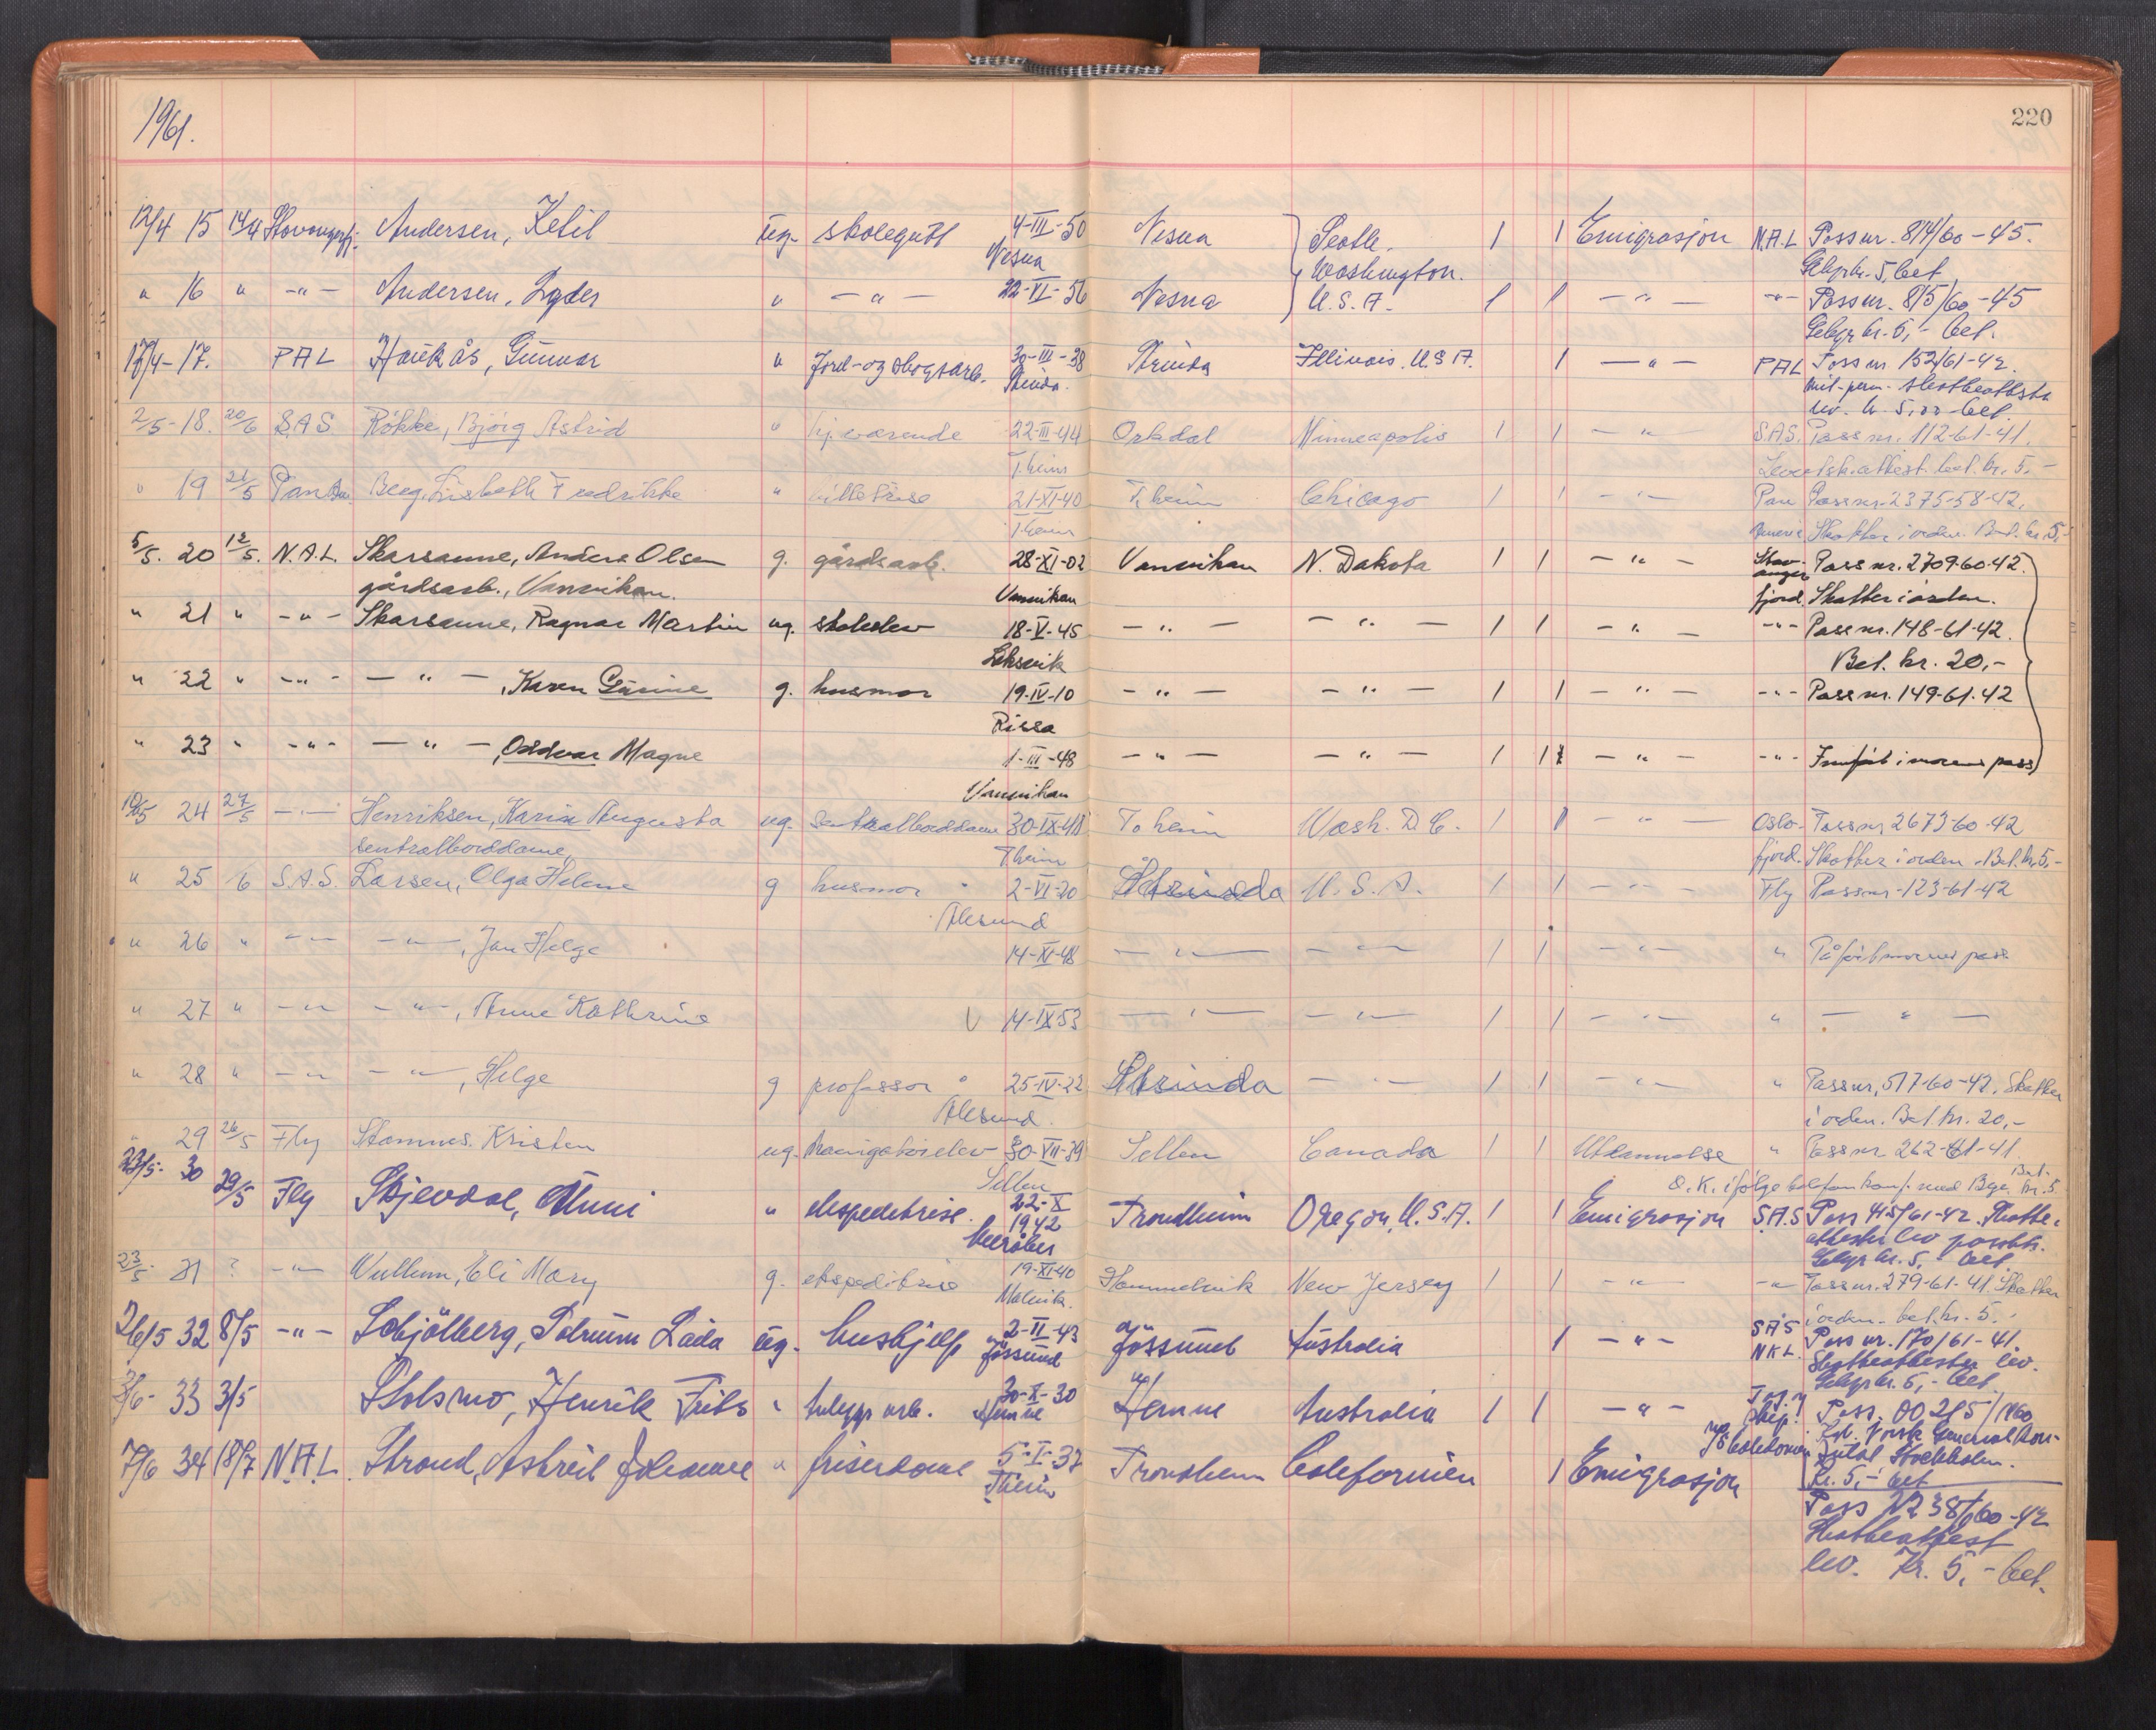 1961.
220
12/4 15 14/4 Stavangerfj. Andersen, Ketil ug. skolegutt 4-III-50 Nesna Seatle. 1 1 Emigrasjon N.A.L Passnr. 814/60-45.
Nesna Washington. Gebyr kr. 5, bet
" 16 " -"- Andersen, " - " - 22-VI-56 Nesna U.S.A. 1 1 - " - -"- Passnr. 815/60-45
Gebyr kr. 5,- bet.
17/4-17. PAL Haukås, Gunnar " Jord-og skogsarb. 30-III-38 Strinda Illinois. U.S.A. 1 - " - PAL Passnr. 152/61-42.
Strinda. mil. perm. skatteattest
lev. kr. 5,00 bet.
2/5-18. 20/6 S.A.S. Røkke, Bjørg Astrid " hj.værende 22-III-44 Orkdal Minneapolis 1 1 - " - S.A.S. Pass nr. 112-61-41.
T.heim Levert sk.attest. bet. kr. 5.-
" 19 21/5 Pan Am Berg, Lisbeth Fredrikke " 21-XI-40 T.heim Chicago 1 1 - " - Pan Passnr. 2375-58-42.
T.heim Skatter i orden. Bet. kr. 5,-
5/5. 20 12/5. N.A.L. Skarsaune, Anders Olsen g. gårdsarb. 28-XI-02 Vanvikan N. Dakota 1 1 - " - Stav- Pass nr. 2709-60-42.
gårdsarb., Vanvikan. Vanvikan anger fjord. Skatter i orden.
" 21 " -"- Skarsaune, Ragnar Martin ug. skoleelev 18-V-45 - " - - " - 1 1 - " - -"- Pass nr. 148-61-42.
Leksvik Bet. kr. 20,-
" 22 " -"- - " -, Karen Gurine g. husmor 19-IV-10 - " - - " - 1 1 - " - -"- Pass nr. 149-61-42
Rissa
" 23 " -"- - " -, Oddvar Magne 1-III-48 - " - - " - 1 1 - " - -"- Innført i morens pass
Vanvikan
10/5 24 27/5 -"- Henriksen, Karin Augusta ug. sentralborddame 30-IX-41 T.heim Wash. D.C. 1 1 - " - Oslo- Passnr 2673-60-42
sentralborddame T.heim fjord. Skatter i orden. Bet. kr. 5,-
" 25 6 S.A.S. Larsen, Olga Helene g husmor 2-VI-20 Strinda U.S.A. 1 1 - " - Fly Passnr. 123-61-42
Ålesund
" 26 " -"- - " -, Jan Helge 14-XI-48 - " - - " - 1 1 - " - " Påført morens pass
" 27 " -"- - " -, Anne Kathrine 14-IX-53 - " - - " - 1 1 - " - " - " -
" 28 " -"- - " -, Helge g professor 25-IV-22 Strinda - " - 1 1 - " - " Passnr. 517-60-42. Skatter
Ålesund. i orden. Bet. kr. 20,-
" 29 26/5 Fly Stamnes. Kristen ug. navigatørelev 30-VII-39 Canada 1 1 Utdannelse " Pass nr 262-61-41.
O.K. ifølge telefonkonf. med Bet. kr. 5
23/5- 30 29/5 Fly Skjevdal, Unni " ekspeditrise. 22-X 1942 Trondheim Oregon, U.S.A. 1 1 Emigrasjon S.A.S Pass 415/61-42. Skatte-
Meråker attester lev
Gebyr kr. 5,- bet.
23/5- 31 ? -"- Wullum, Eli Mary g. ekspeditrise 19-XI-40 Hommelvik New Jersey 1 1 - " - -"- Passnr. 279-61-41. Skatter
Malvik. i orden. bet. kr. 5.-
26/5 32 8/5 -"- Schjölberg, Laila ug. hushjelp 2-II-43 Jössund Australia 1 - " - SAS Pass nr. 170/61-41.
Jössund NKL Skatteattester lev.
Gebyr kr. 5,- bet.
3/6- 33 3/5 Stolsmo, Henrik Frits " Anlegg arb. 30-X-30 Hemne Australia 1 1 - " - Pass. 00215/1960
Hemne Norsk General kon-
sulat Stockholm.
Kr. 5,- bet
7/6 34 18/7 N.A.L. Strand, Astrid Johanne " friserdame 5-I-37 Trondheim Californien 1 Emigrasjon
T.heim Pass 1238/60-42
Skatteattest
lev. Kr. 5,- bet.